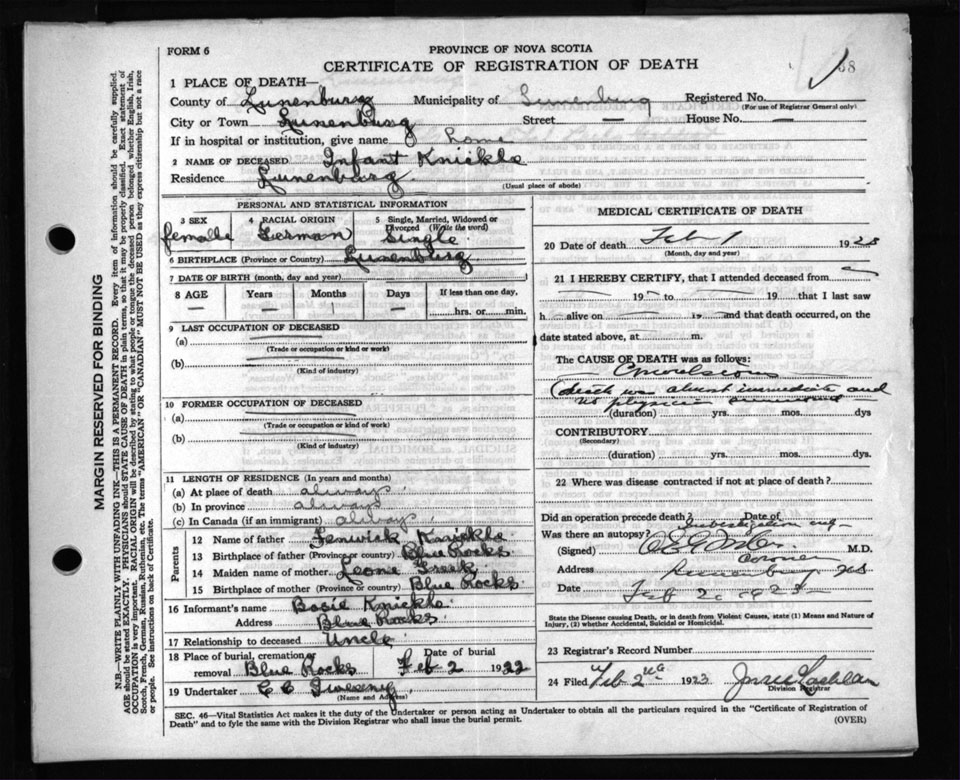 FORM 6
PROVINCE OF NOVA SCOTIA
CERTIFICATE OF REGISTRATION OF DEATH
1 PLACE OF DEATH—
County of Lunenburg Municipality of Lunenburg Registered No.
(For use of Registrar General only)
City or Town Lunenburg Street — House No. —
If in hospital or institution, give name home
2 NAME OF DECEASED Infant Knickle
Residence Lunenburg
(Usual place of abode)
PERSONAL AND STATISTICAL INFORMATION
3 SEX 4 RACIAL ORIGIN 5 Single, Married, Widowed or Divorced (Write the word)
female German Single
6 BIRTHPLACE (Province or Country) Lunenburg
7 DATE OF BIRTH (month, day and year)
8 AGE Years Months Days If less than one day,
hrs. or min.
9 LAST OCCUPATION OF DECEASED
(a)
(Trade or occupation or kind or work)
(b)
(Kind of industry)
10 FORMER OCCUPATION OF DECEASED
(a)
(Trade or occupation or kind of work)
(b)
(Kind of industry)
11 LENGTH OF RESIDENCE (In years and months)
(a) At place of death always
(b) In province always
(c) In Canada (if an immigrant) always
Parents
12 Name of father Fenwick Knickle
13 Birthplace of father (Province or country) Blue Rocks
14 Maiden name of mother Leone
15 Birthplace of mother (Province or country) Blue Rocks
16 Informant's name Basil Knickle
Address Blue Rocks
17 Relationship to deceased Uncle
18 Place of burial, cremation or removal Blue Rocks
Date of burial Feb 2 1922
19 Undertaker C C
(Name and Address)
MEDICAL CERTIFICATE OF DEATH
20 Date of death Feb 1 1923
(Month, day and year)
21 I HEREBY CERTIFY, that I attended deceased from
19 to 19 that I last saw
h alive on 19 and that death occurred, on
date stated above, at m.
The CAUSE OF DEATH was as follows:
Convulsion
(death was almost immediate and
no physician summoned
(duration) yrs. mos. dys
CONTRIBUTORY
(Secondary)
(duration) yrs. mos. dys.
22 Where was disease contracted if not at place of death?
Did an operation precede death? Date of
Was there an autopsy? Investigation only
(Signed) M.D.
Coroner
Address Lunenburg NS
Date Feb 2 1923
State the Disease causing Death, or in death from Violent Causes, state (1) Means and Nature of Injury, (2) whether Accidental, Suicidal or Homicidal.
23 Registrar's Record Number
24 Filed Feb 2nd 1923
Division Registrar
SEC. 46—Vital Statistics Act makes it the duty of the Undertaker or person acting as Undertaker to obtain all the particulars required in the "Certificate of Registration of
Death" and to fyle the same with the Division Registrar who shall issue the burial permit. (OVER)
MARGIN RESERVED FOR BINDING
N.B.—WRITE PLAINLY WITH UNFADING INK—THIS IS A PERMANENT RECORD. Every item of information should be carefully supplied.
AGE should be stated EXACTLY. PHYSICIANS should STATE CAUSE OF DEATH in plain terms, so that it may be properly classified. Exact statement of
OCCUPATION is very important. RACIAL ORIGIN will be described by stating to what people or tongue the deceased person belonged whether English, Irish,
Scotch, French, German, Russian, Ruthenian, etc. The terms "AMERICAN" OR "CANADIAN" MUST NOT BE USED as they express citizenship but not a race
or people. See instructions on back of Certificate.